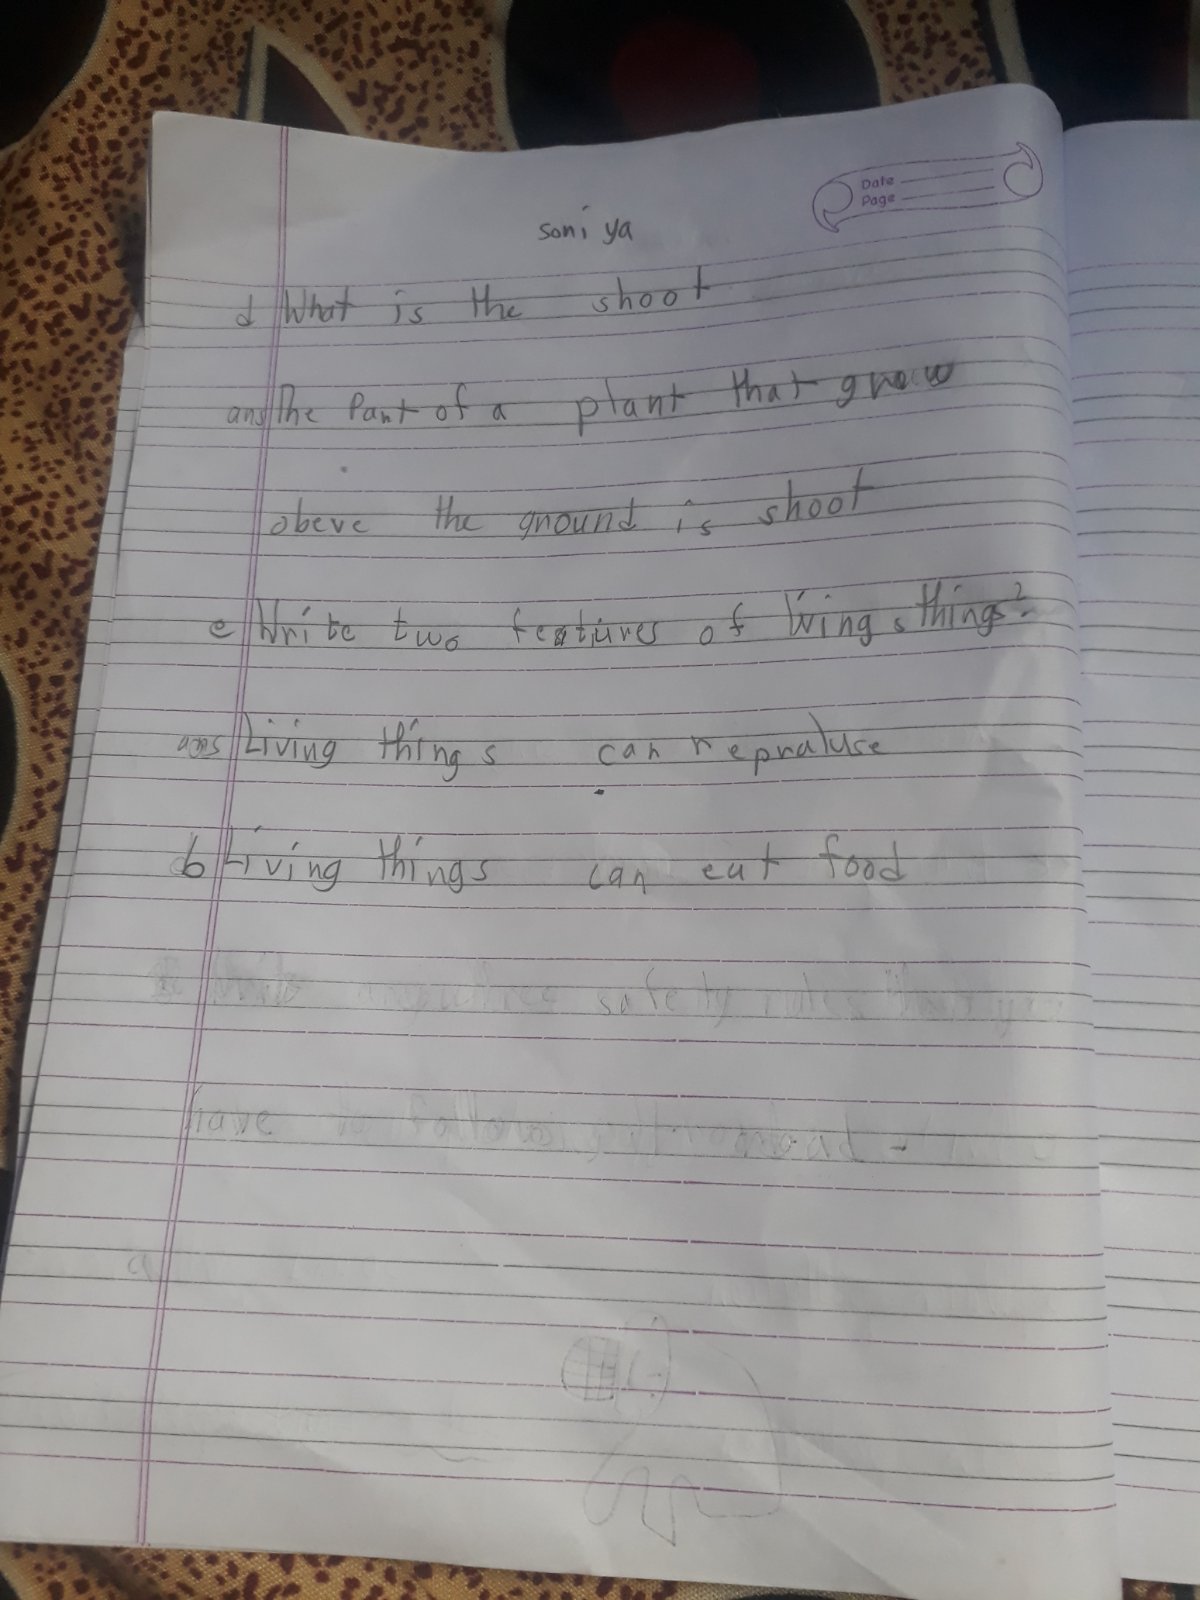 Date
Page
soni ya
d What is the shoot
ans The Part of a plant that grow
obeve the ground is shoot
e Write two features of living things?
ans Living things can repraluse
b Living things can eat food
safety rules that you
have to follow